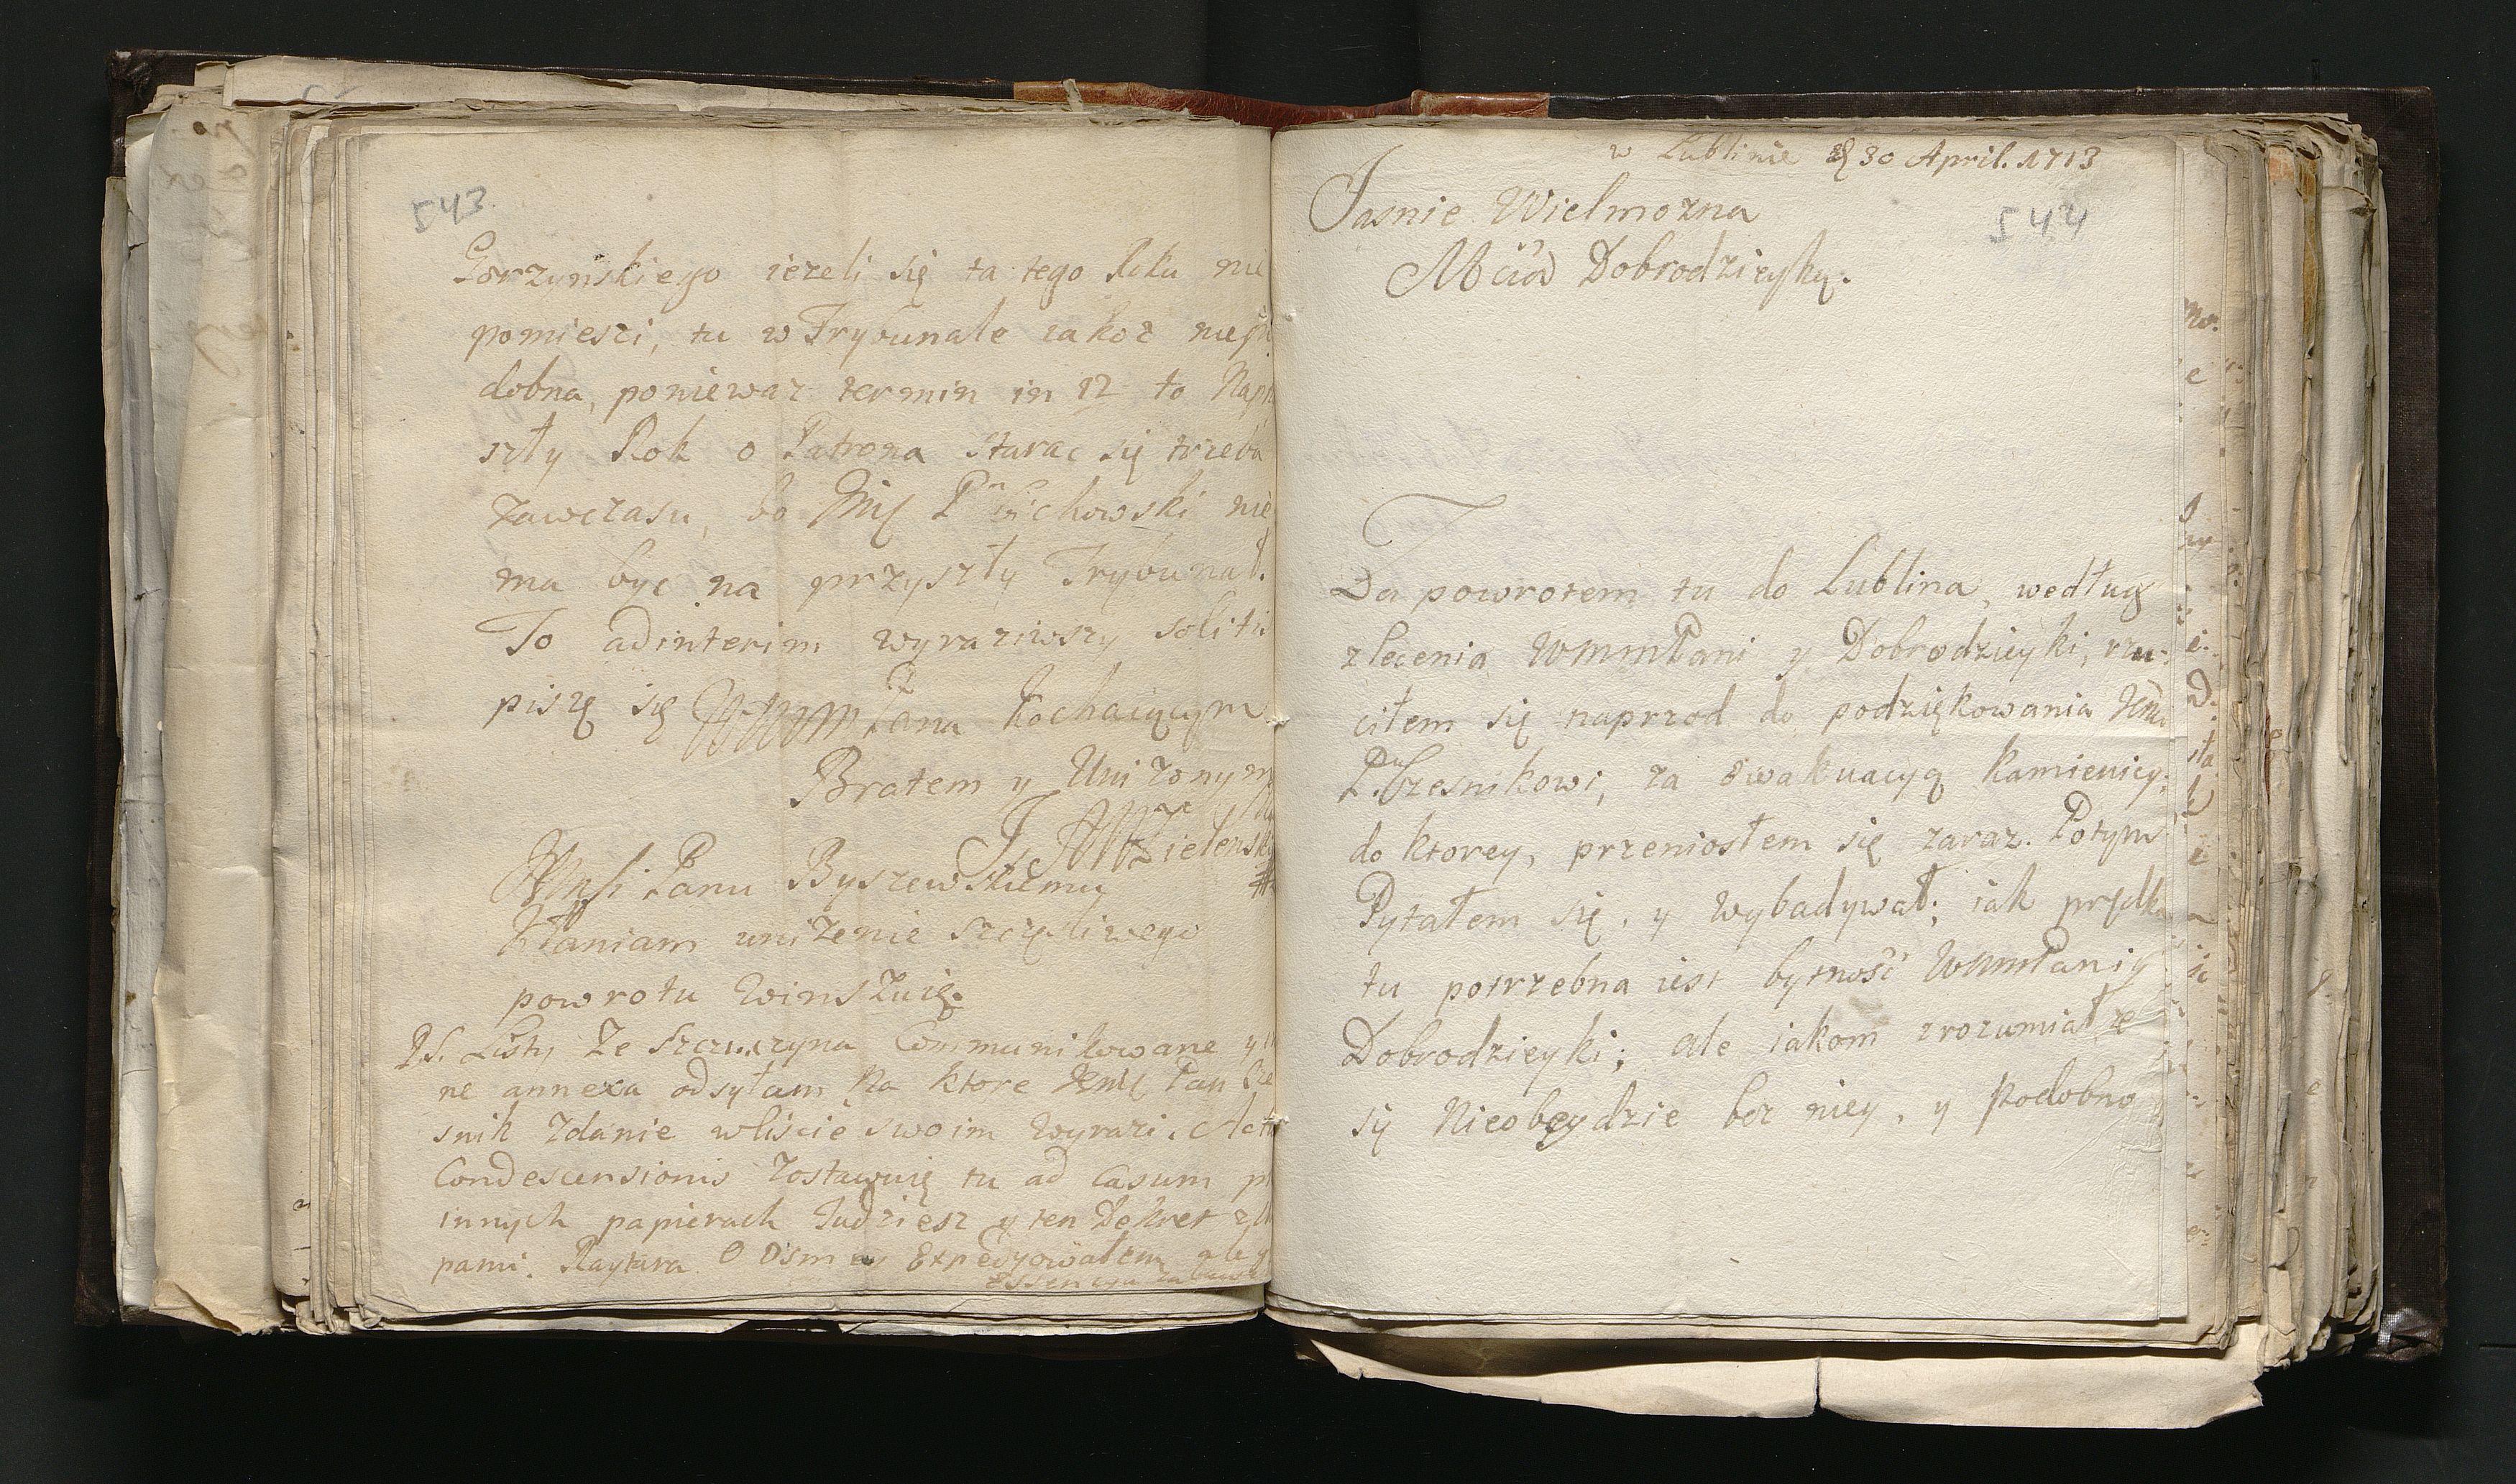 543.
Gorzynskiego ieżeli się ta tego Roku nie
pomiesci, tu w Trybunale iakoż
dobna, poniewaz termin in 12 to
szły Rok o Patrona starac się trzeba
zawczasu, bo
ma byc na przyszły Trybunał.
To adinterim wyraziwszy
piszę się WMM Pana kochaiącym
Bratem y Unizonym
Zielenski
Panu Byszewskiemu
Kłaniam unizenie szczęsliwego
powrotu Winszuię.
PS. Listy ze Communikowane
ne annexa odsyłam Na ktore Jemc Pan
snik Zdanie wliscie swoim Wyrazi.
Condescensionis Zostawuię tu ad casum
innych papierach Tudziesz y ten Dekret
pami. O Expedyowałem
w Lublinie d 30 April. 1713
Jasnie Wielmozna
Mcia Dobrodzieyko.
544
Za powrotem tu do Lublina, według
zlecenia WMMPani y Dobrodzieyki, rzu-
ciłem się naprzod do podziękowania
P. Czesnikowi, za Ewakuacyą Kamienicy,
do ktorey, przeniosłem się zaraz. Potym
Pytałem się, y wybadywał; iak prędko
tu potrzebna iest bytność WMMPani y
Dobrodzieyki; ale iakom zrozumiał ze
się Nieobęydzie bez niey, y podobno